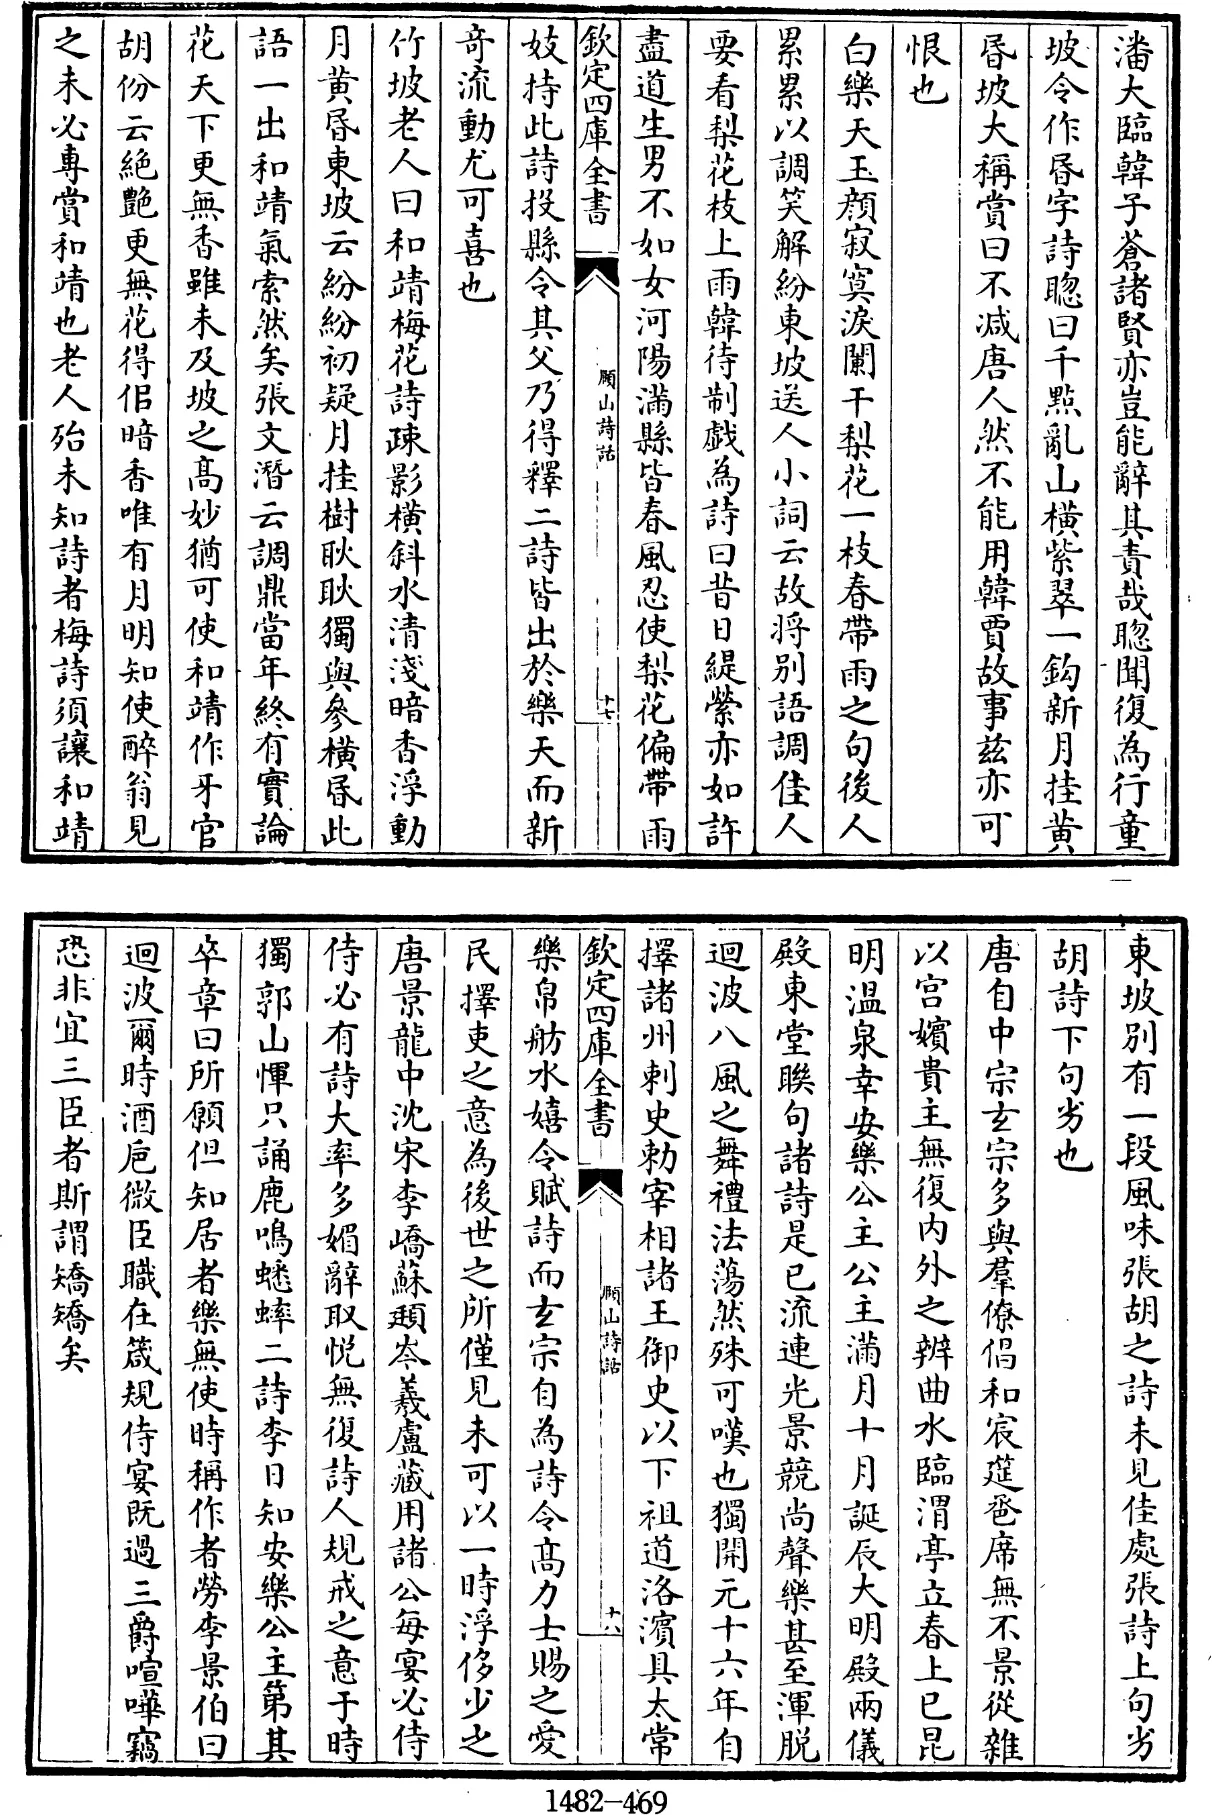 潘大臨韓子蒼諸賢亦豈能辭其責哉聰聞復為行童
坡令作昏字詩聰曰千點亂山橫紫翠一鈎新月挂黄
昏坡大稱賞曰不減唐人然不能用韓賈故事兹亦可
恨也
白樂天玉顔寂寞淚闌干梨花一枝春帶雨之句後人
累累以調笑解紛東坡送人小詞云故将别語調佳人
要看梨花枝上雨韓待制戯為詩曰昔日緹縈亦如許
盡道生男不如女河陽滿縣皆春風忍使梨花偏帶雨
欽定四庫全書
頋山詩話
十七
妓持此詩投縣令其父乃得釋二詩皆出於樂天而新
奇流動尤可喜也
竹坡老人曰和靖梅花詩疎影橫斜水清淺暗香浮動
月黄昏東坡云紛紛初疑月挂樹耿耿獨與參橫昏此
語一出和靖氣索然矣張文潛云調鼎當年終有實論
花天下更無香雖未及坡之髙妙猶可使和靖作牙官
胡份云絶艷更無花得佀暗香唯有月明知使醉翁見
之未必專賞和靖也老人殆未知詩者梅詩須讓和靖
東坡别有一段風味張胡之詩未見佳處張詩上句劣
胡詩下句劣也
唐自中宗玄宗多與羣僚倡和宸筵卺席無不景從雜
以宫嬪貴主無復内外之辨曲水臨渭亭立春上巳昆
明温泉幸安樂公主公主滿月十月誕辰大明殿兩儀
殿東堂聨句諸詩是已流連光景競尚聲樂甚至渾脱
迴波八風之舞禮法蕩然殊可嘆也獨開元十六年自
擇諸州刺史勅宰相諸王御史以下祖道洛濱具太常
欽定四庫全書
頋山詩話
十八
樂帛舫水嬉令賦詩而玄宗自為詩令髙力士賜之愛
民擇吏之意為後世之所僅見未可以一時浮侈少之
唐景龍中沈宋李嶠蘇頲岑羲盧藏用諸公每宴必侍
侍必有詩大率多媚辭取悦無復詩人規戒之意于時
獨郭山惲只誦鹿鳴蟋蟀二詩李日知安樂公主第其
卒章曰所願但知居者樂無使時稱作者勞李景伯曰
迴波爾時酒巵微臣職在箴規侍宴既過三爵喧嘩竊
恐非宜三臣者斯謂矯矯矣
1482-469